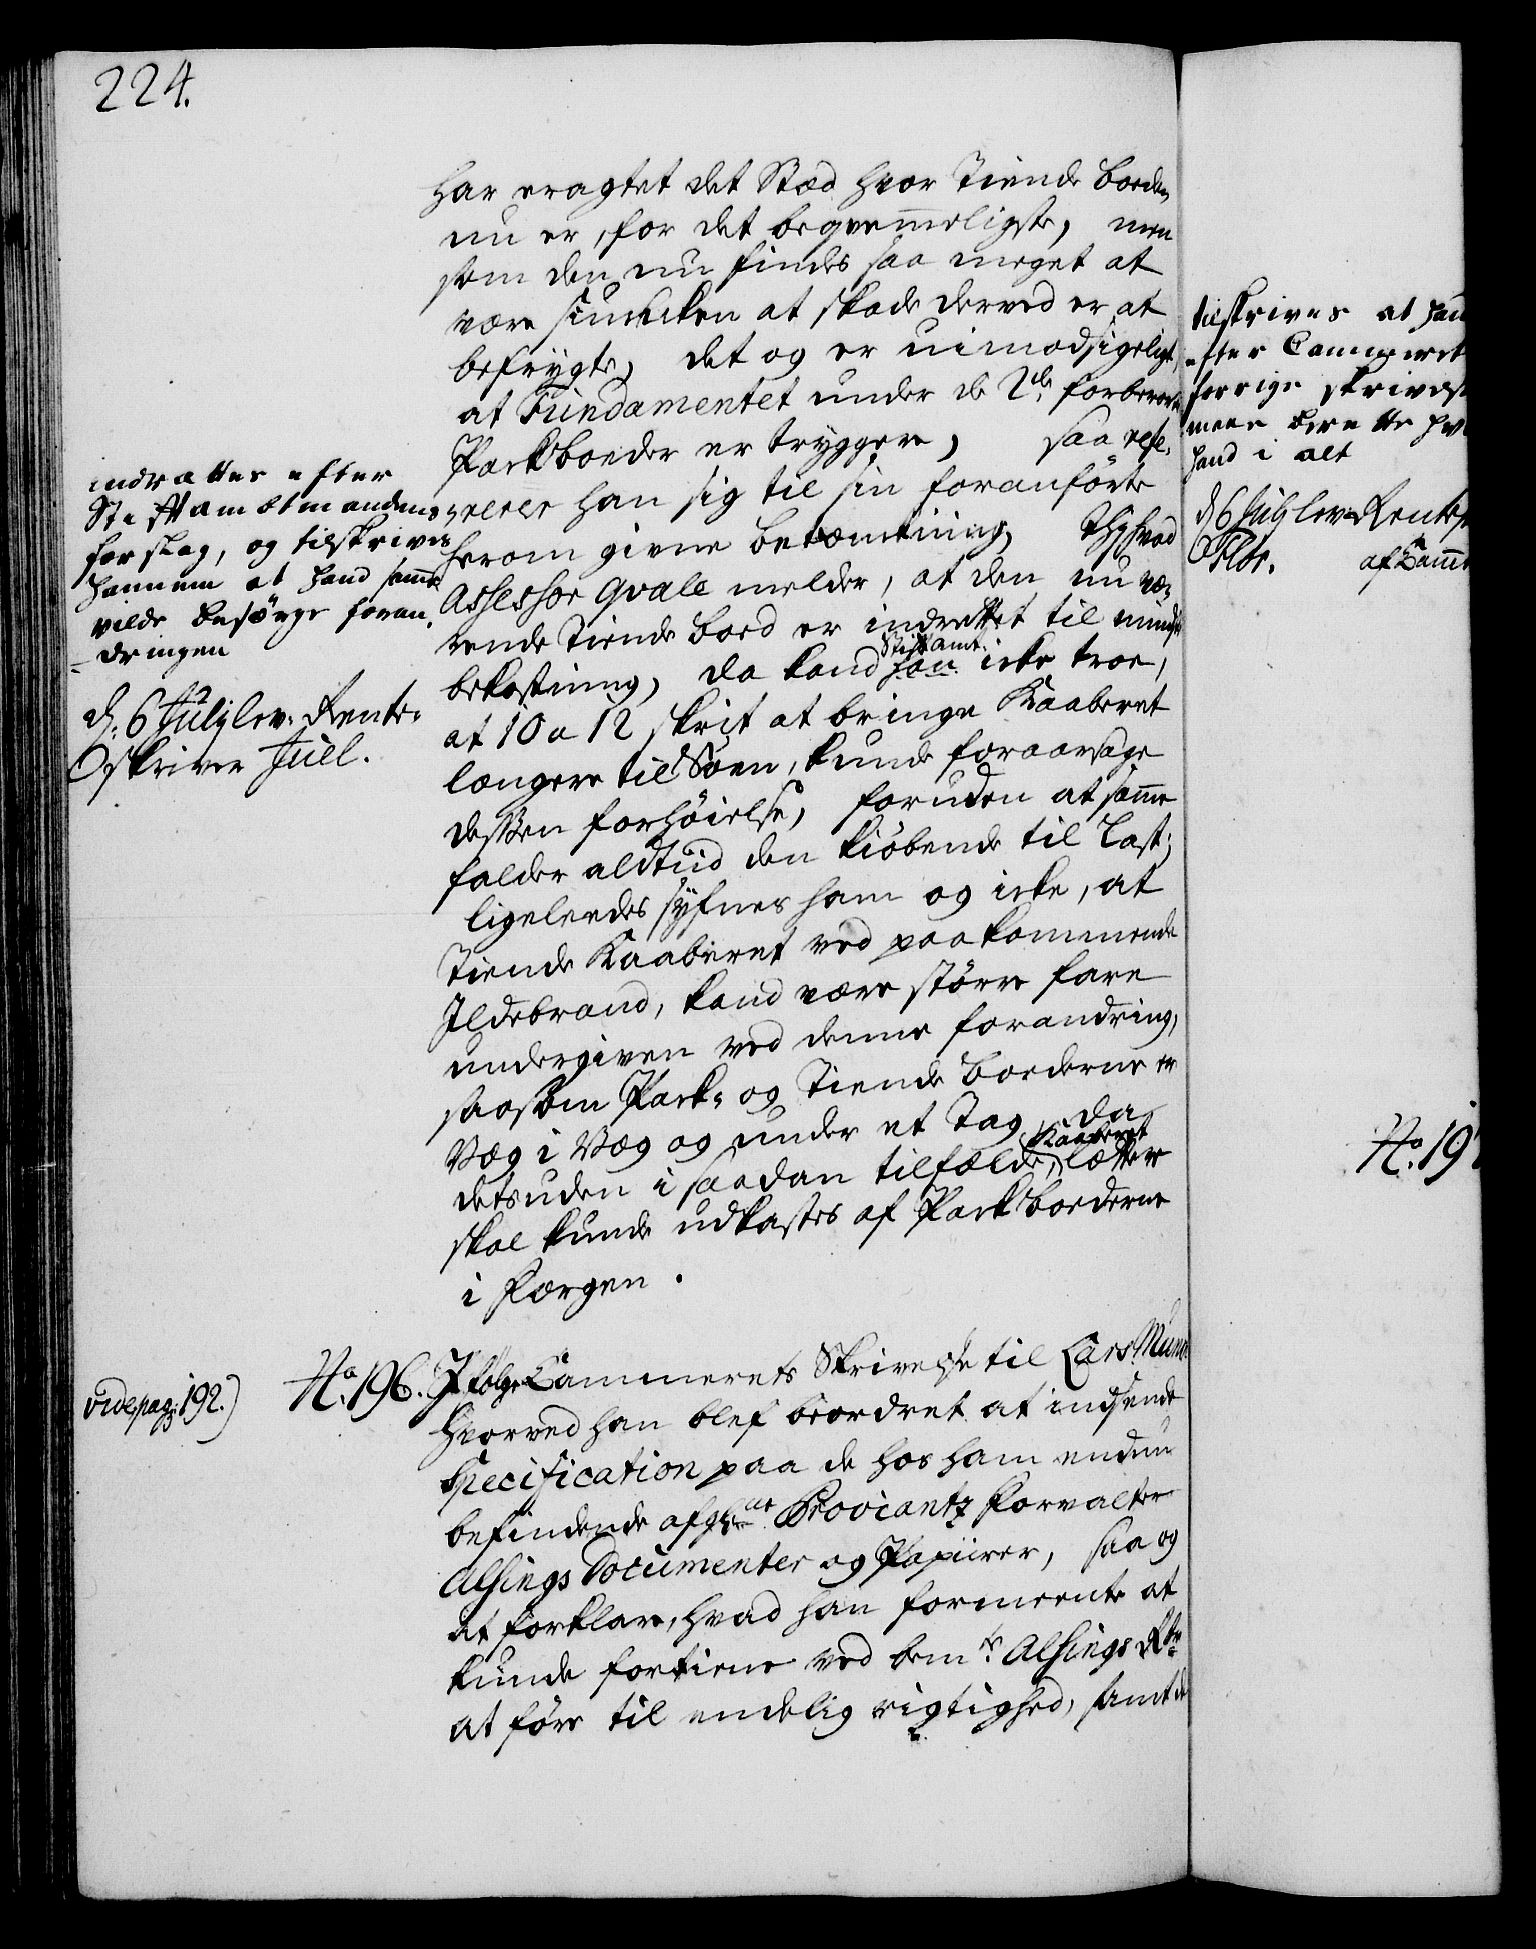 224.
har eragtet det Stæd hvor Tiende boeden
nu er, for det beqvemmeligste, men
som den nu findes saa meget at
være siuncken at skade derved er at
befrygte, det og er uimodsigeligt,
at Fundamentet under de 2de forberørte
Packboeder er tryggere, saa refe-
rerer han sig til sin foranförte
herom givne betænkning, Thj hvad
Assessor Qvale melder, at den nu væ-
rende Tiende boed er indrettet til minste
bekostning, da kand Stiftamt. han icke troe,
at 10 a 12 skrit at bringe Kaaberet
længere til Söen, kunde foraarsage
dessen forhöielse, foruden at samme
falder altiid den kiöbende til Last;
ligeleedes syfnes ham og icke, at
Tiende Kaaberet ved paakommende
Ildebrand, kand være större fare
undergiven ved denne forandring,
saasom Pack- og Tiende boederne er
Væg i Væg og under et Tag, da
detsuden i saadan tilfælde, Kaaberet lættere
skal kunde udkastes af Packboederne
i Færgen.
indrættes efter
Stiftambtmandens
forslag, og tilskrives
hannem at hand samme
vilde besörge foran-
dringen
d. 6 Julij lev. Rente-
skriver Juel.
vide pag: 192.)
No. 196. I fölge Cammerets Skrivelse til Lars Munch
hvorved han blef beordret at indsende
Specification paa de hos ham endnu
befindende afg. Proviantz Forvalter
Alsings Documenter og Papiirer, saa og
at forklare, hvad han formeente at
kunde fortiene ved bem.te Alsings
at före til endelig rigtighed, samt de
tilskrives at hand
efter Cammeret
forrige skrivels
meere berette hv
hand i alt
d. 6 Julij lev. Rente
af Camme
No. 197